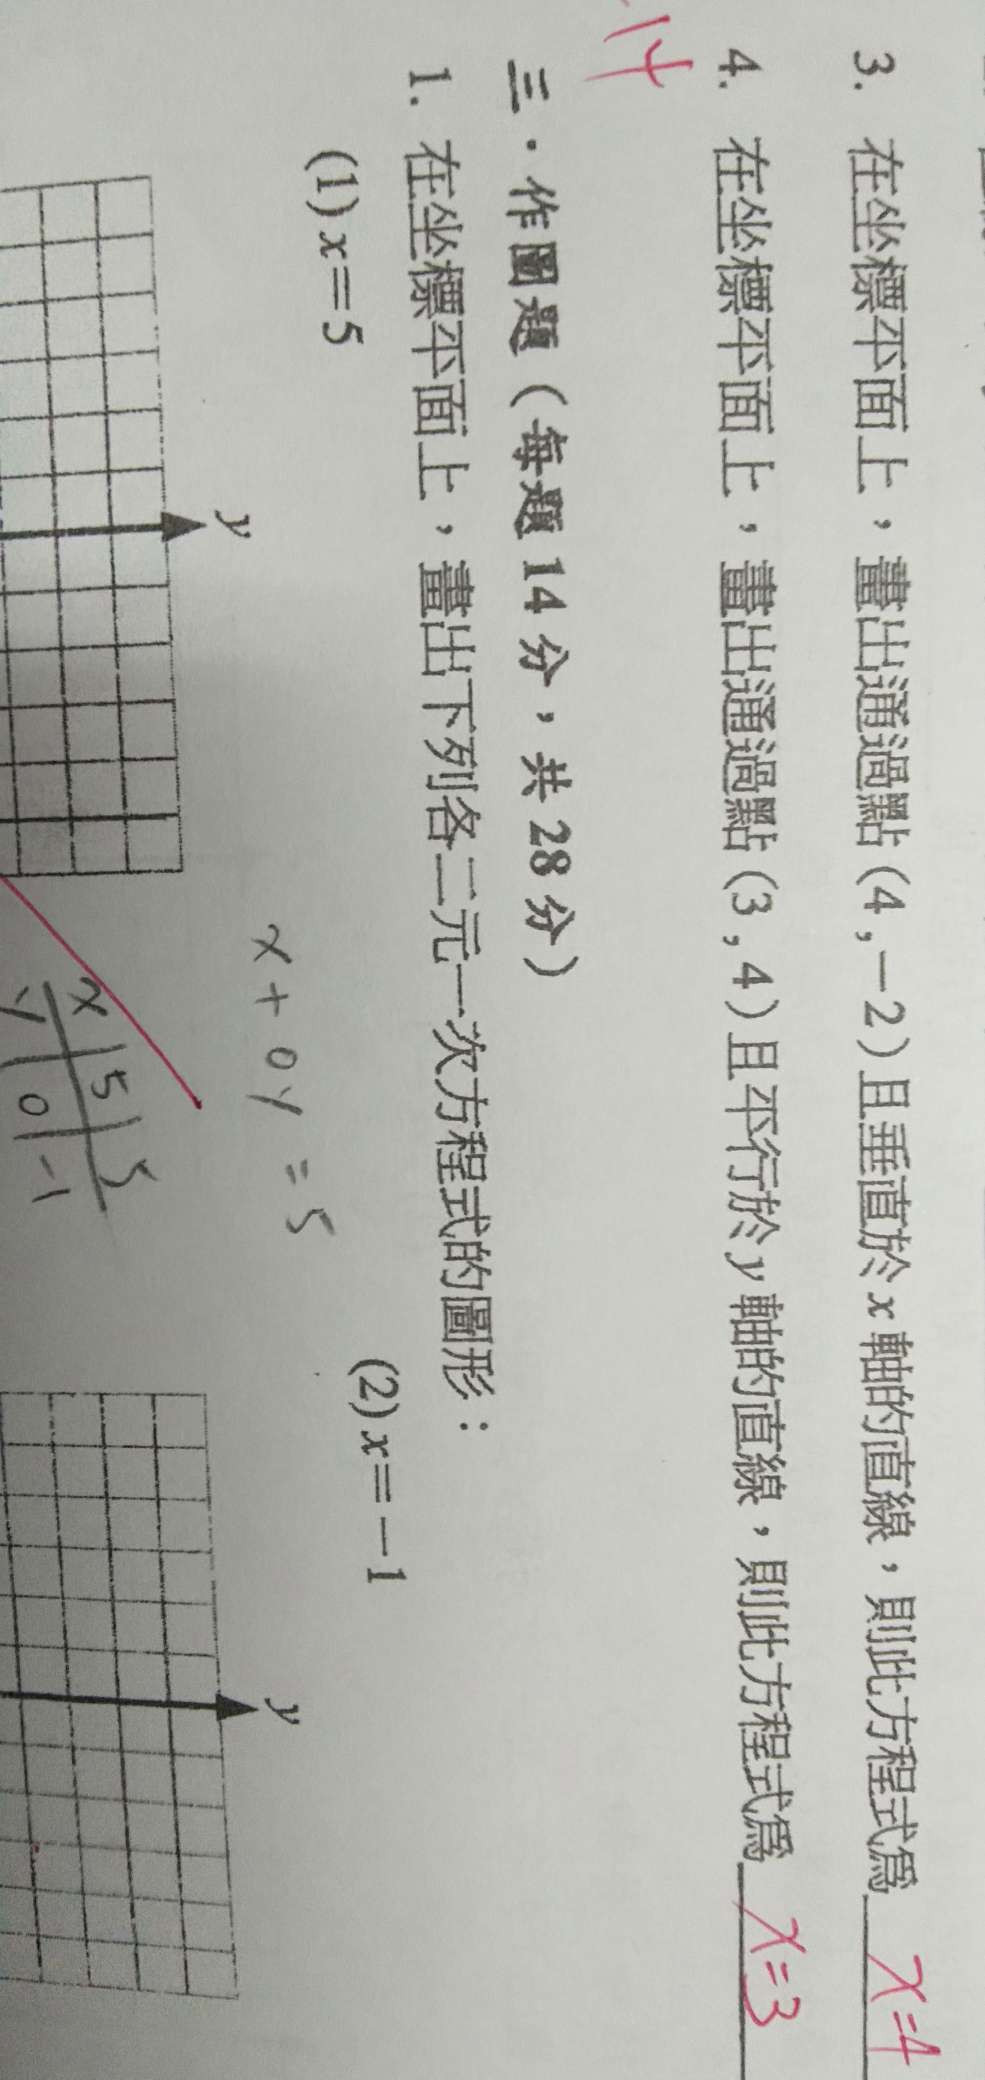 3. 在坐標平面上，畫出通過點(4,−2)且垂直於x軸的直線，則此方程式為 x=4
4. 在坐標平面上，畫出通過點(3,4)且平行於y軸的直線，則此方程式為 x=3
14
三．作圖題（每題14分，共28分）
1. 在坐標平面上，畫出下列各二元一次方程式的圖形：
(1) x=5
(2) x=−1
x+0y=5
y
y
x 5 5
y 0 -1